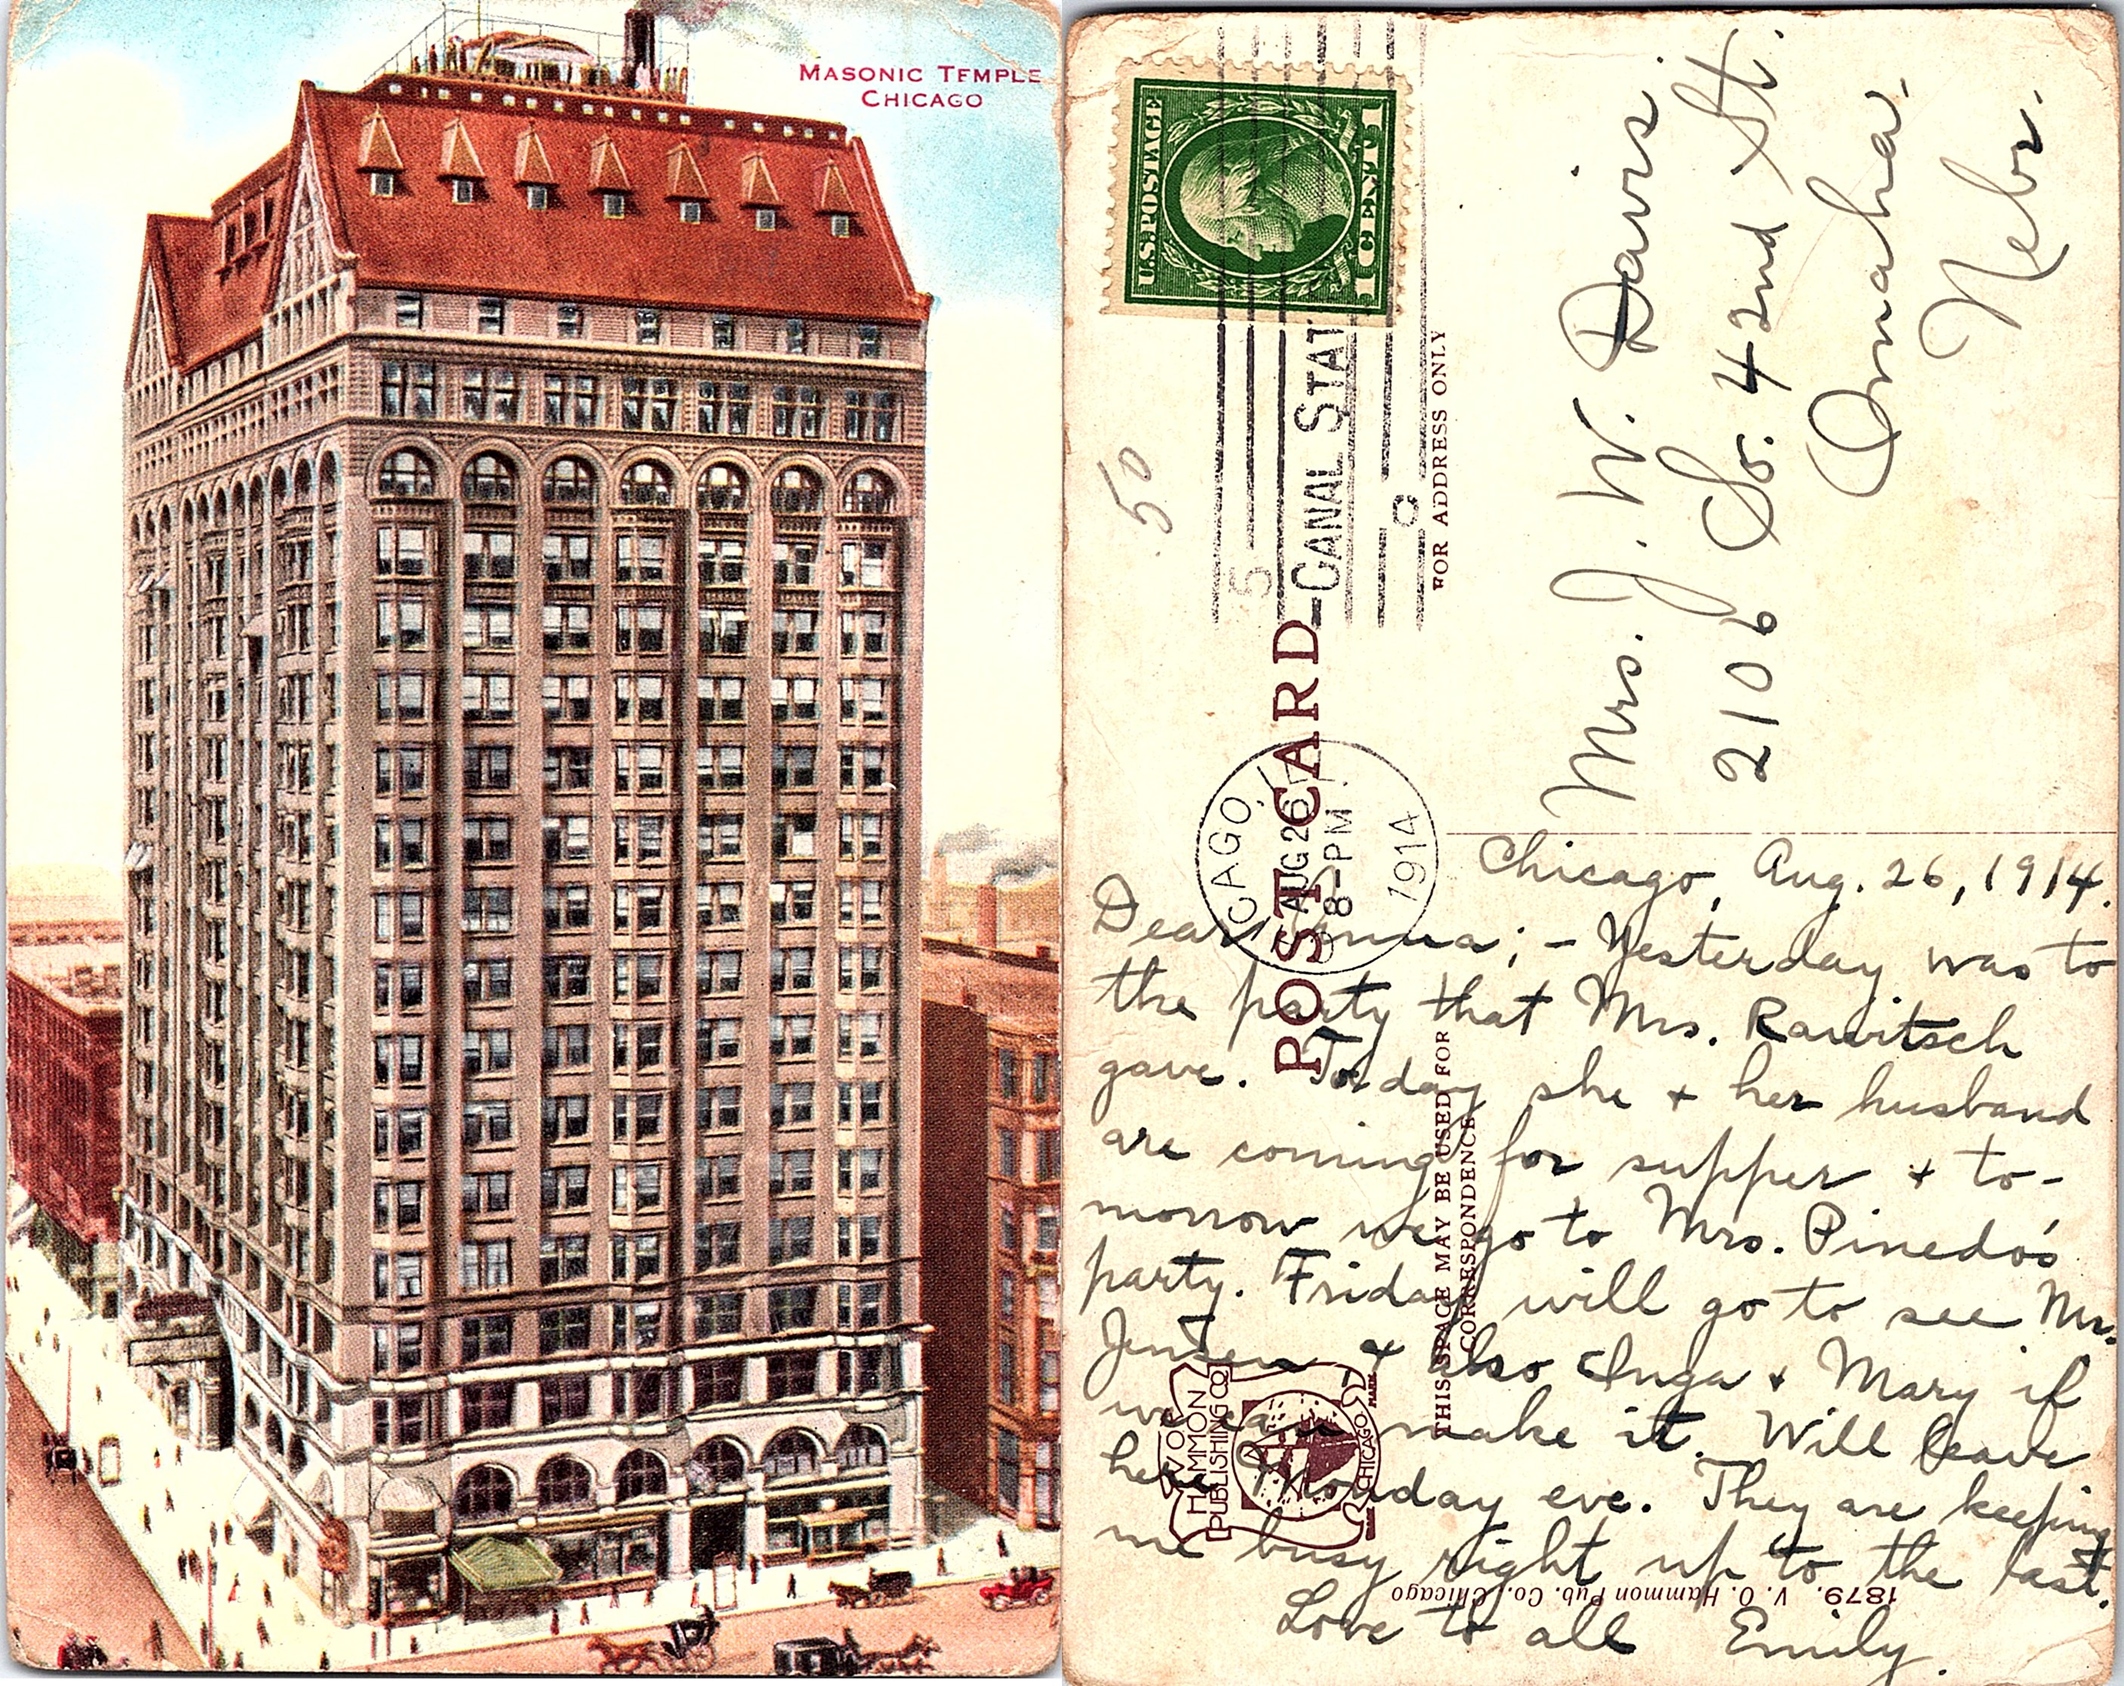 MASONIC TEMPLE
CHICAGO
U.S. POSTAGE
1 CENT 1
.50
CANAL STAT
5
C
CAGO, I
AUG 26
8-PM
1914
POST CARD
FOR ADDRESS ONLY
THIS SPACE MAY BE USED FOR
CORRESPONDENCE
Mrs. J. W. Davis
2106 So. 42nd St.
Omaha.
Nebr.
Chicago, Aug. 26, 1914.
Dear Anna; - Yesterday was to
the party that Mrs. Rawitsch
gave. Today she + her husband
are coming for supper + to-
morrow we go to Mrs. Pinedo's
party. Friday will go to see Mrs.
Jensen + also Inga + Mary if
we can make it. Will leave
here Monday eve. They are keeping
me busy right up to the last.
Love to all Emily.
V.O.
HAMMON
PUBLISHING CO.
CHICAGO
TRADE MARK
1879. V. O. Hammon Pub. Co. Chicago